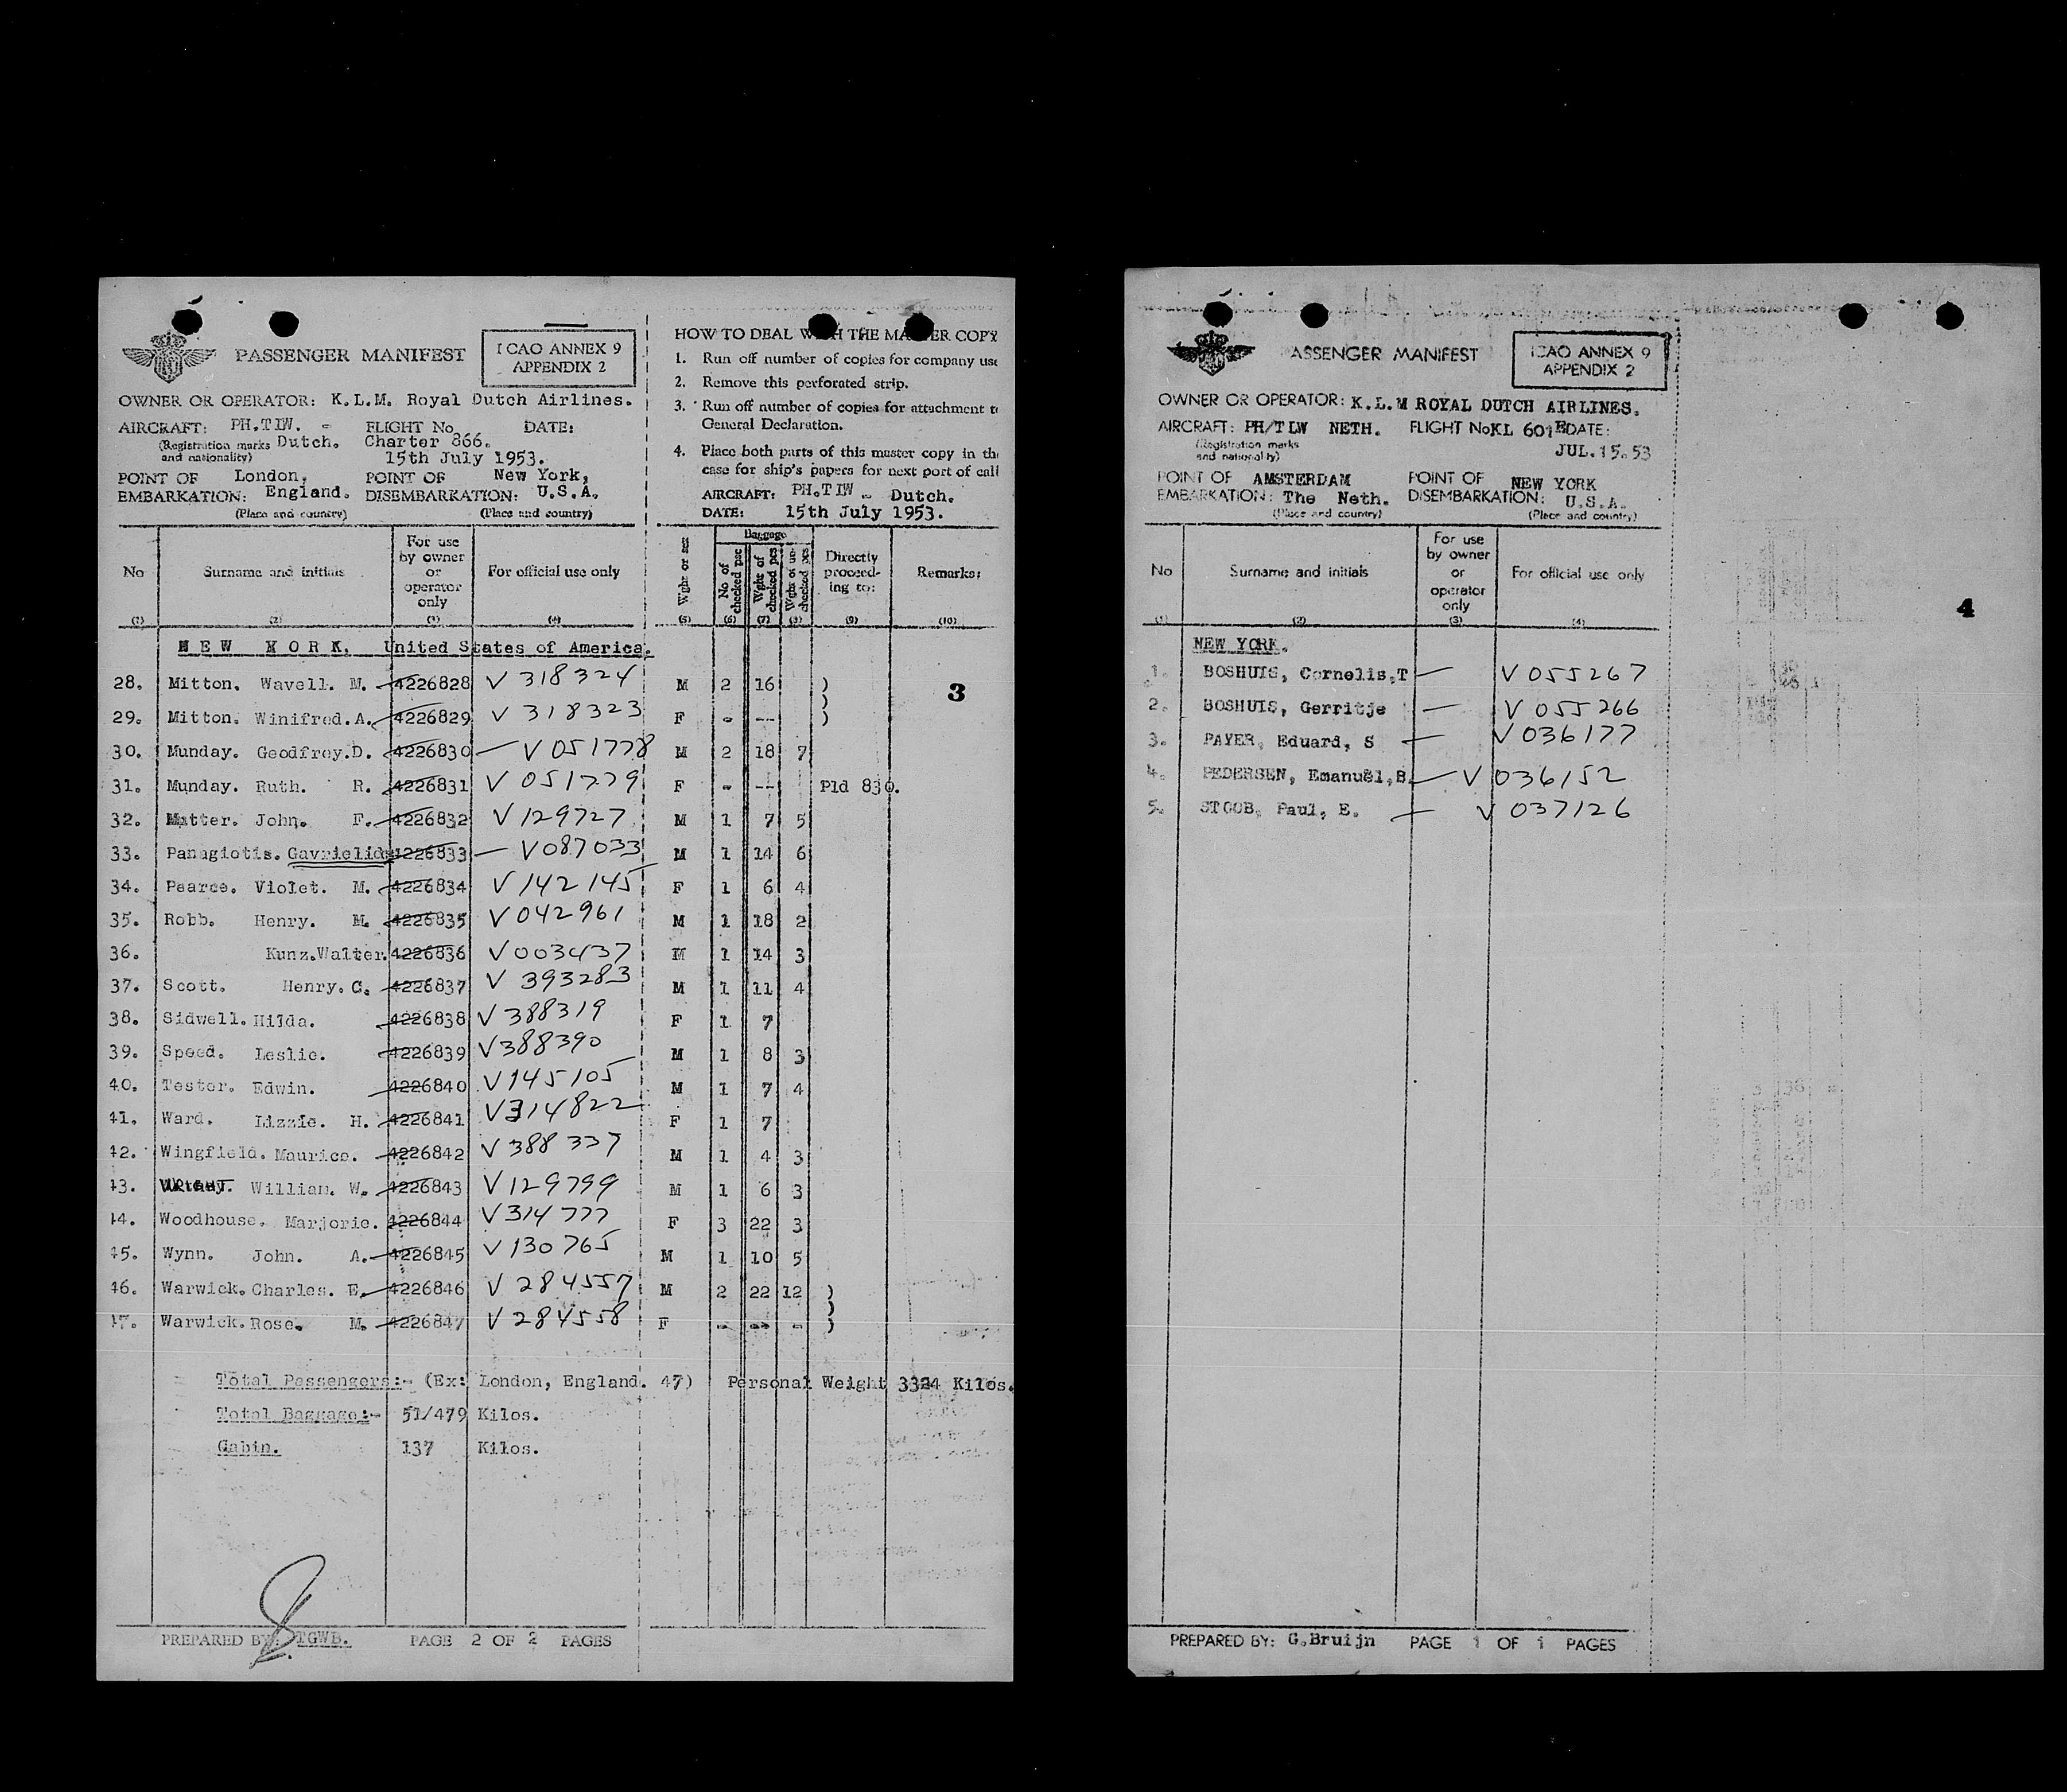 PASSENGER MANIFEST
ICAO ANNEX 9
APPENDIX 2
OWNER OR OPERATOR: K.L.M. Royal Dutch Airlines.
AIRCRAFT: PH.TIW. - FLIGHT No DATE:
(Registration marks and nationality) Dutch. Charter 866.
15th July 1953.
POINT OF EMBARKATION: London, England. POINT OF DISEMBARKATION: New York, U.S.A.
(Place and country) (Place and country)
HOW TO DEAL THE COPY
1. Run off number of copies for company use
2. Remove this perforated strip.
3. Run off number of copies for attachment to
General Declaration.
4. Place both parts of this master copy in the
case for ship's papers for next port of call
AIRCRAFT: PH.TIW - Dutch.
DATE: 15th July 1953.
No Surname and initials For use by owner or operator only For official use only Wght or sex Baggage No of checked pec Wght of checked pcs Wght of un-checked pcs Directly proceed-ing to: Remarks:
(1) (2) (3) (4) (5) (6) (7) (8) (9) (10)
NEW YORK, United States of America.
28. Mitton. Wavell. M. 4226828 V 318324 M 2 16 )
3
29. Mitton. Winifred.A. 4226829 V 318323 F - -- )
30. Munday. Geodfrey.D. 4226830 — V 051778 M 2 18 7
31. Munday. Ruth. R. 4226831 V 051779 F - -- Pld 830.
32. Matter. John. F. 4226832 V 129727 M 1 7 5
33. Panagiotis. Gavrielides 4226833 — V087033 M 1 14 6
34. Pearce. Violet. M. 4226834 V 142145 F 1 6 4
35. Robb. Henry. M. 4226835 V 042961 M 1 18 2
36. Kunz.Walter. 4226836 V003437 M 1 14 3
37. Scott. Henry. C. 4226837 V 393283 M 1 11 4
38. Sidwell. Hilda. 4226838 V 388319 F 1 7
39. Speed. Leslie. 4226839 V388390 M 1 8 3
40. Tester. Edwin. 4226840 V145105 M 1 7 4
41. Ward. Lizzie. H. 4226841 V314822 F 1 7
42. Wingfield. Maurice. 4226842 V 388337 M 1 4 3
43. William. W. 4226843 V129799 M 1 6 3
44. Woodhouse. Marjorie. 4226844 V314777 F 3 22 3
45. Wynn. John. A. 4226845 V130765 M 1 10 5
46. Warwick. Charles. E. 4226846 V 284557 M 2 22 12 )
47. Warwick. Rose. M. 4226847 V 284558 F - -- - )
Total Passengers:- (Ex: London, England. 47) Personal Weight Kilos.
Total Baggage:- 51/479 Kilos.
Cabin. 137 Kilos.
PREPARED BY: TGWB. PAGE 2 OF 2 PAGES
ASSENGER MANIFEST
ICAO ANNEX 9
APPENDIX 2
OWNER OR OPERATOR: K.L.M ROYAL DUTCH AIRLINES.
AIRCRAFT: PH/TLW NETH. FLIGHT No KL 601E DATE:
(Registration marks and nationality) JUL.15.53
POINT OF EMBARKATION: AMSTERDAM The Neth. POINT OF DISEMBARKATION: NEW YORK U.S.A.
(Place and country) (Place and country)
No Surname and initials For use by owner or operator only For official use only
(1) (2) (3) (4)
4
NEW YORK.
1. BOSHUIS, Cornelis,T — V 055267
2. BOSHUIS, Gerritje — V 055266
3. PAYER, Eduard, S — V036177
4. PEDERSEN, Emanuel,B. — V 036152
5. STOOB, Paul, E. — V 037126
PREPARED BY: G.Bruijn PAGE 1 OF 1 PAGES